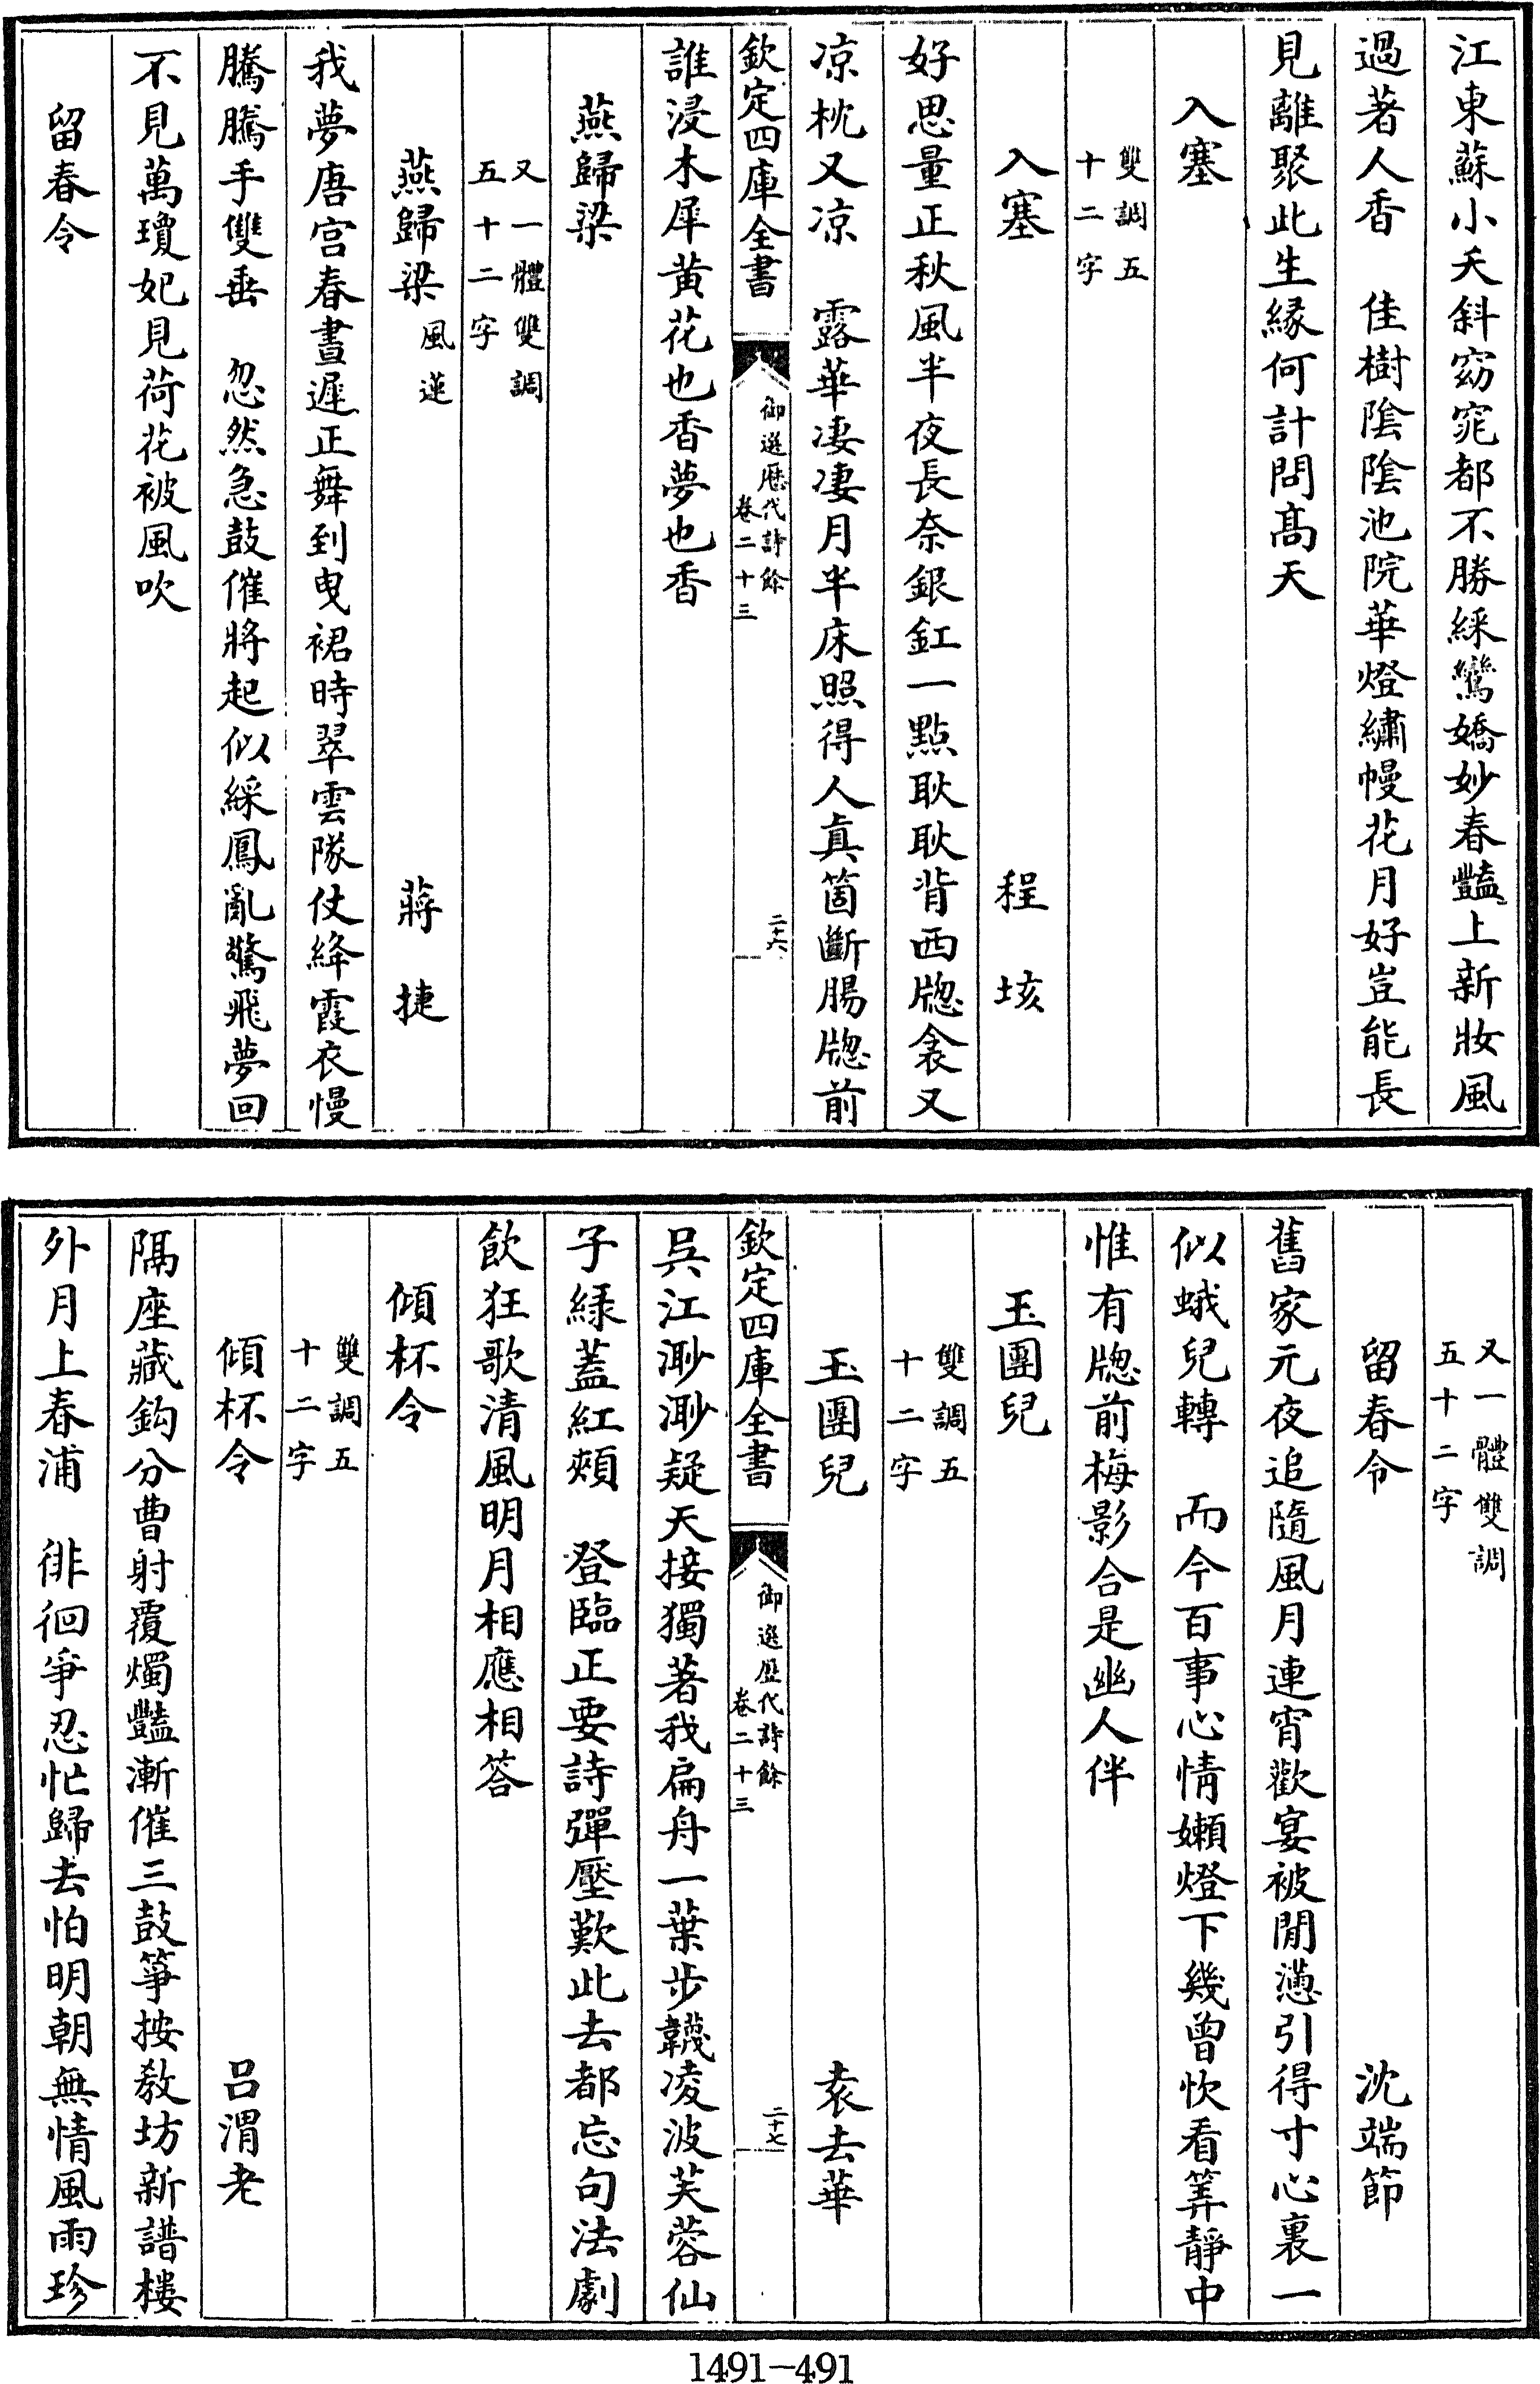 江東蘇小夭斜窈窕都不勝綵鸞嬌妙春豔上新妝風
過著人香　佳樹陰陰池院華燈繡幔花月好豈能長
見離聚此生緣何計問髙天
入塞
雙調五
十二字
入塞　程垓
好思量正秋風半夜長奈銀釭一點耿耿背西牕衾又
凉枕又凉　露華凄凄月半床照得人真箇斷腸牕前
欽定四庫全書
御選歷代詩餘
卷二十三
二十六
誰浸木犀黄花也香夢也香
燕歸梁
又一體雙調
五十二字
燕歸梁風蓮　蔣捷
我夢唐宫春晝遲正舞到曳裙時翠雲隊仗絳霞衣慢
騰騰手雙垂　忽然急鼓催將起似綵鳳亂驚飛夢回
不見萬瓊妃見荷花被風吹
留春令
又一體雙調
五十二字
留春令　沈端節
舊家元夜追隨風月連宵歡宴被閒懑引得寸心裏一
似蛾兒轉　而今百事心情嬾燈下幾曾忺看筭靜中
惟有牕前梅影合是幽人伴
玉團兒
雙調五
十二字
玉團兒　袁去華
欽定四庫全書
御選歷代詩餘
卷二十三
二十七
吳江渺渺疑天接獨著我扁舟一葉步韈凌波芙蓉仙
子緑蓋紅頰　登臨正要詩彈壓歎此去都忘句法劇
飲狂歌清風明月相應相答
傾杯令
雙調五
十二字
傾杯令　吕渭老
隔座藏鈎分曹射覆燭豔漸催三鼓箏按教坊新譜樓
外月上春浦　徘徊爭忍忙歸去怕明朝無情風雨珍
1491-491